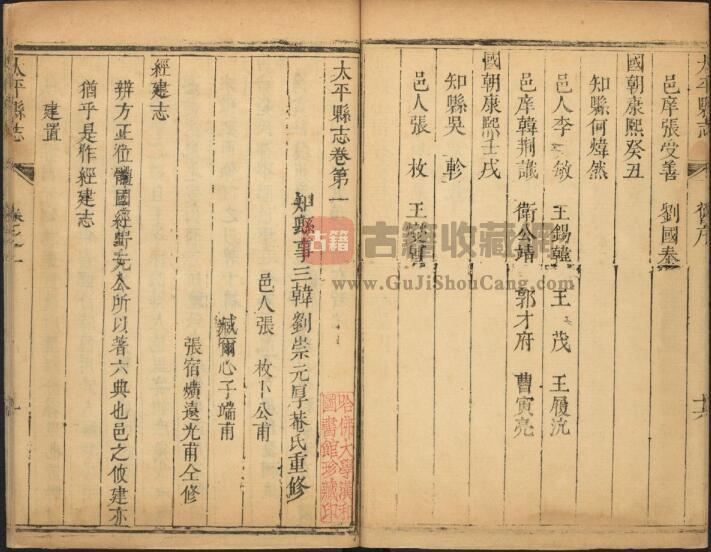 太平縣志
舊序
邑庠張受善 劉國泰
國朝康熙癸丑
知縣何煒然
邑人李 敏 王錫韓 王 茂 王履沆
邑庠韓荆識 衛公靖 郭才府 曹寅亮
國朝康熙壬戌
知縣吳 軫
邑人張 枚
太平縣志卷第一
知縣事三韓劉崇元厚菴氏重修
邑人張 枚卜公甫
臧爾心子端甫
張宿爌遠光甫仝修
經建志
辨方正位體國經野元公所以著六典也邑之攸建亦
猶乎是作經建志
建置
太平縣志
卷之一
哈佛大學漢和
圖書館珍藏印
古籍
古籍收藏網
www.GuJiShouCang.com